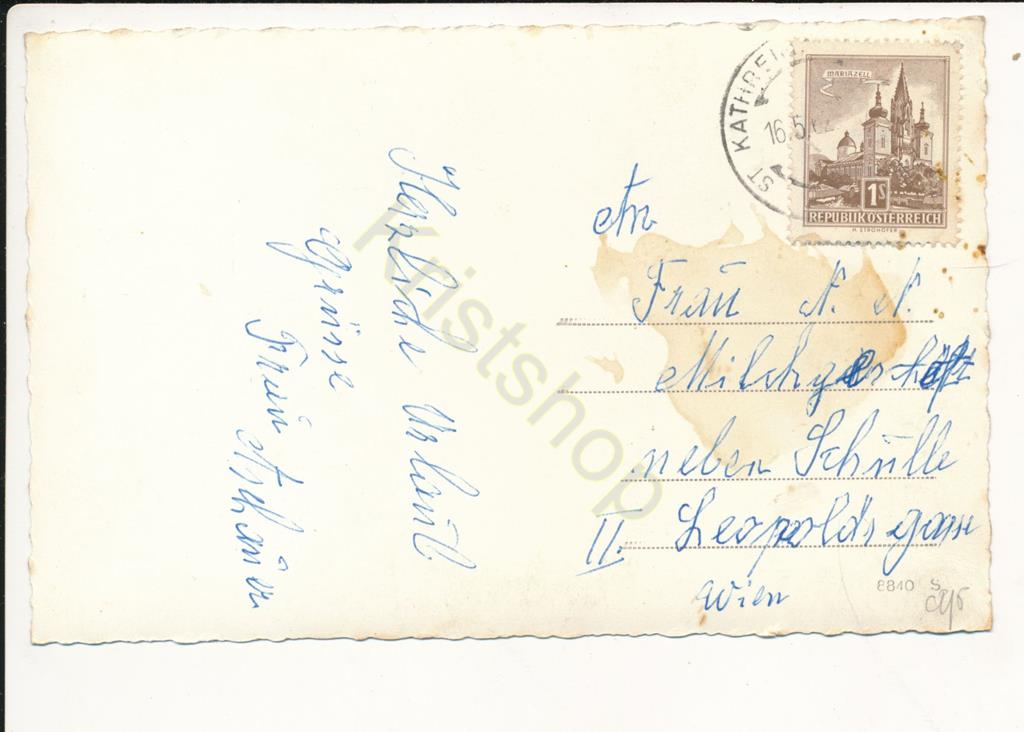 Herzliche Urlaub
Grüsse
Frau
ST. KATHREI
16.5.62
MARIAZELL
1S
REPUBLIK ÖSTERREICH
H. STROHOFER
An
Frau N. N.
Milchgeschäft
neben Schulle
II. Leopoldsgasse
Wien
8840 S
Kristshop